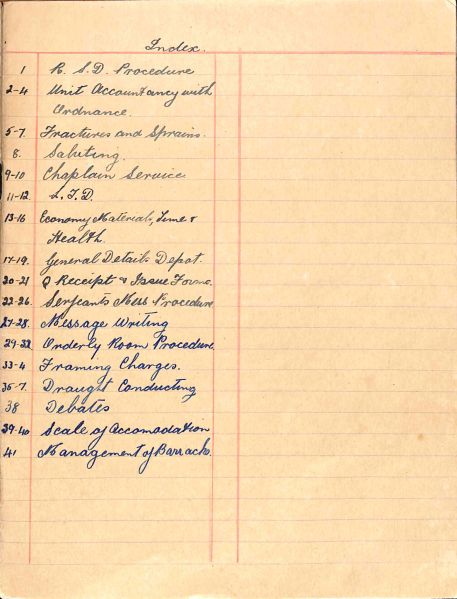 Index.
1 R. S. D. Procedure
2-4 Unit Accountancy with
Ordnance.
5-7. Fractures and Sprains.
8. Saluting.
9-10 Chaplain Service
11-12. L. T. D.
13-16 Economy Material, Time &
Health.
17-19. General Details Depot.
20-21 Q Receipt & Issue Forms.
22-26. Serjeants Mess Procedure
27-28. Message Writing
29-32 Orderly Room Procedure.
33-4 Framing Charges.
35-7. Draught Conducting
38 Debates
39-40 Scale of Accomodation
41 Management of Barracks.